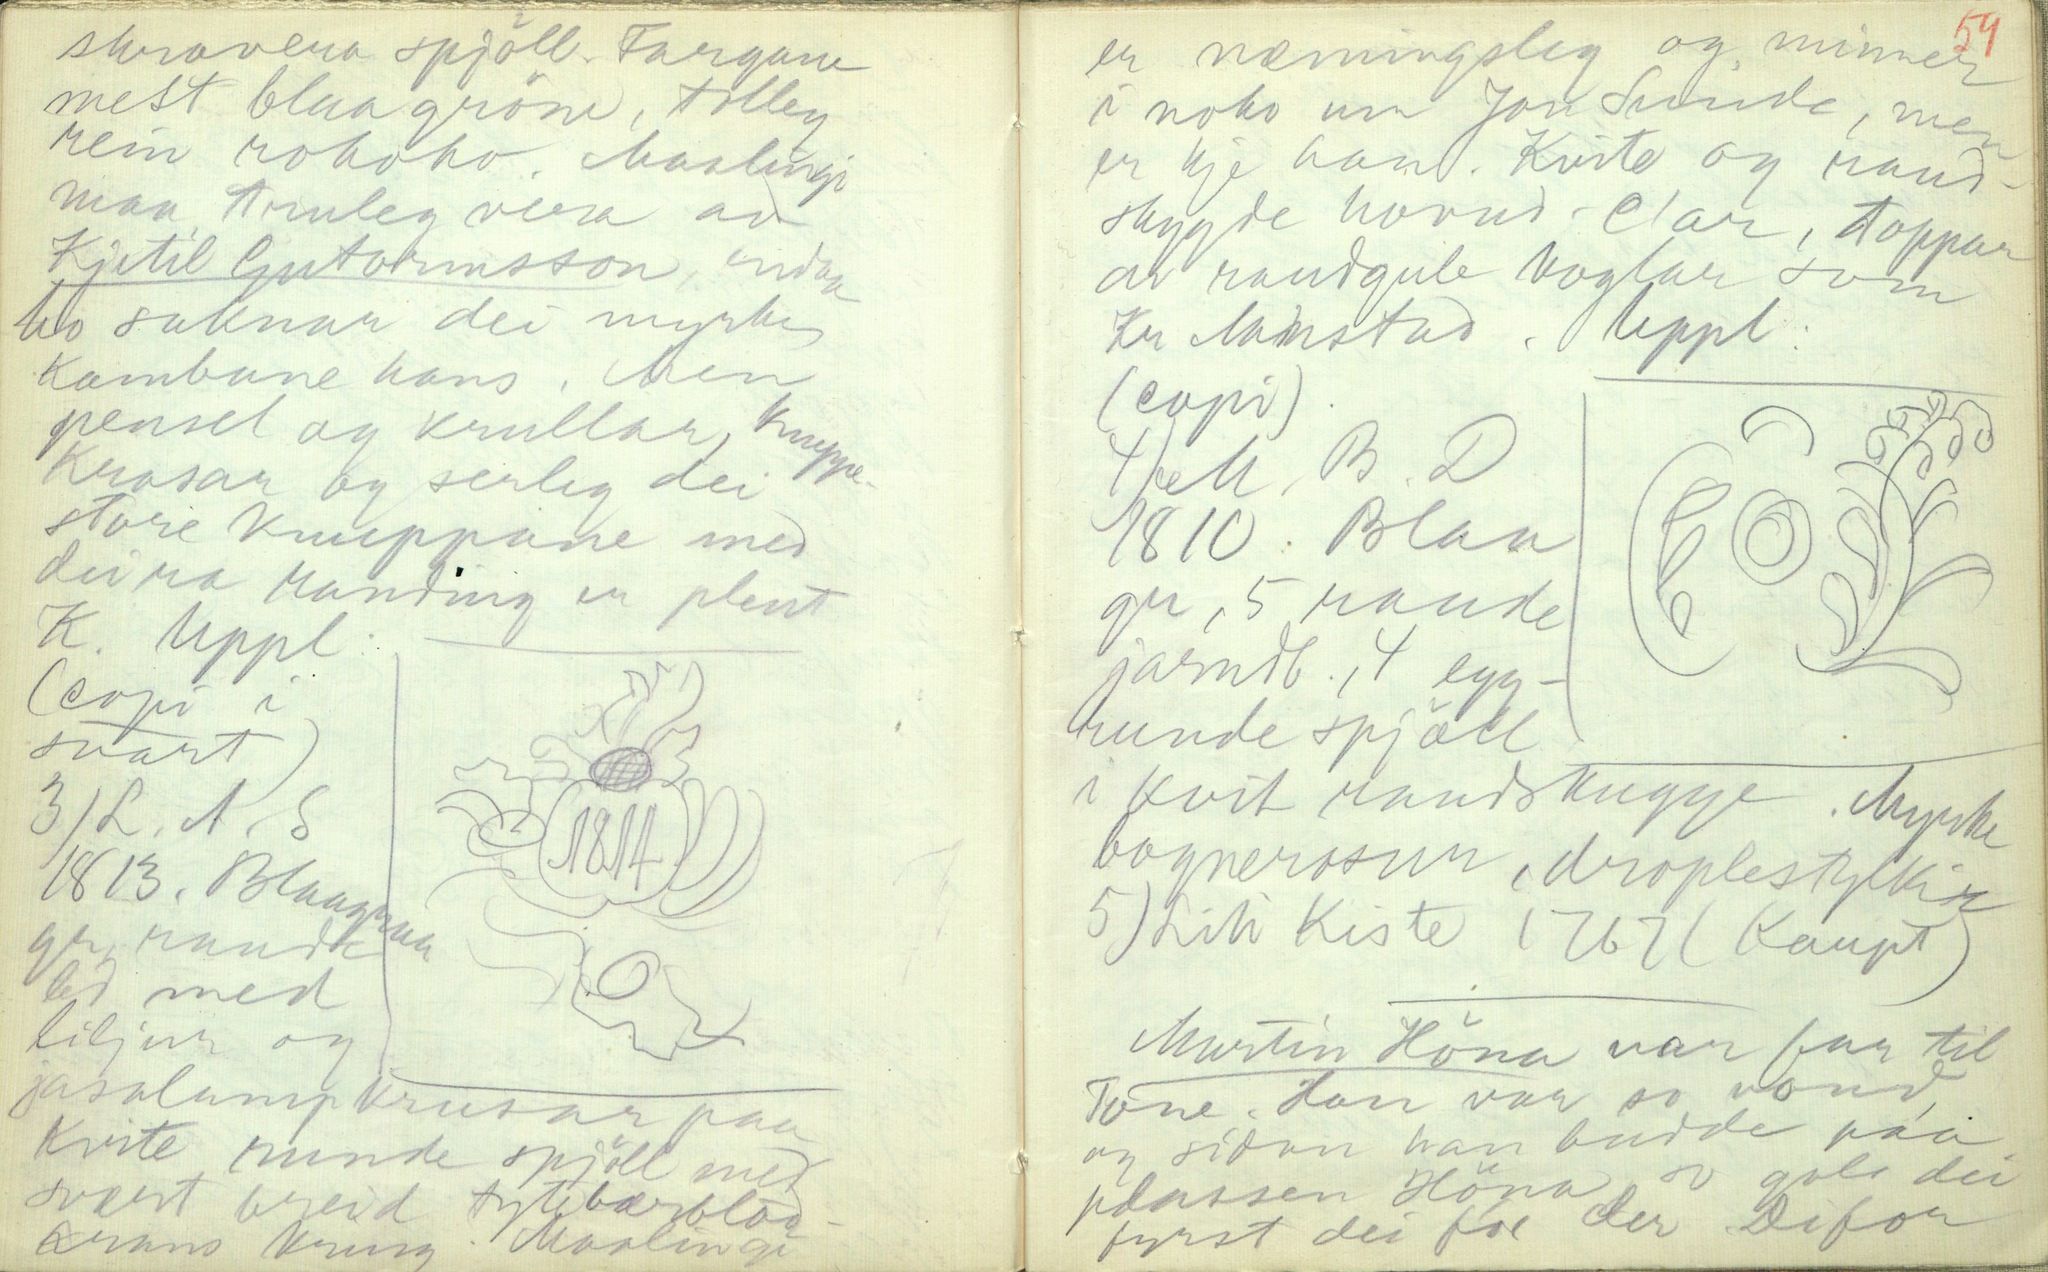 skravera spjöll. Fargane
mest blaagröne, tolleg
rein rokoko. Maalingi
maa truleg vera av
Kjetil Guttormsson, endaa
ho saknar dei myrke
Kambane hans. Men
pensel og krullar, knuppe-
Krosar og serleg dei
store knuppane med
deira randing er plent
K. Uppl:
(copi i
svart)
1814
3) L. A. S
1813. Blaagraa
gr, raude
bd med
liljur og
paa
Kvite runde spjöll med
svært breid tytebærblad-
krans kring. Maalingi
54
er næmingsleg og minner
i noko um Jon Sunde, men
er kje han. Kvite og raud-
skygde hovud-C'ar, toppar
av raudgule voglar som
Kr Uppl:
(copi).
4) B. D
1810. Blaa
gr, 5 raude
jarndb., 4 egg-
runde spjöll
i kvit raudskugge. Myrke
vognerosur,
5) Liti Kiste 1767 (Kaupt)
Martin Höna var far til
Tone. Han var so vond,
og sidan han budde paa
plassen Höna, so gol dei
fyrst dei for der. Difor